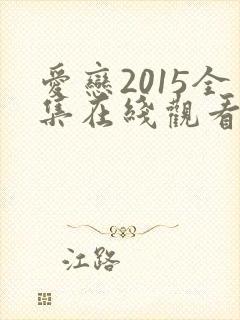 愛戀2015全
集在綫觀看
江路